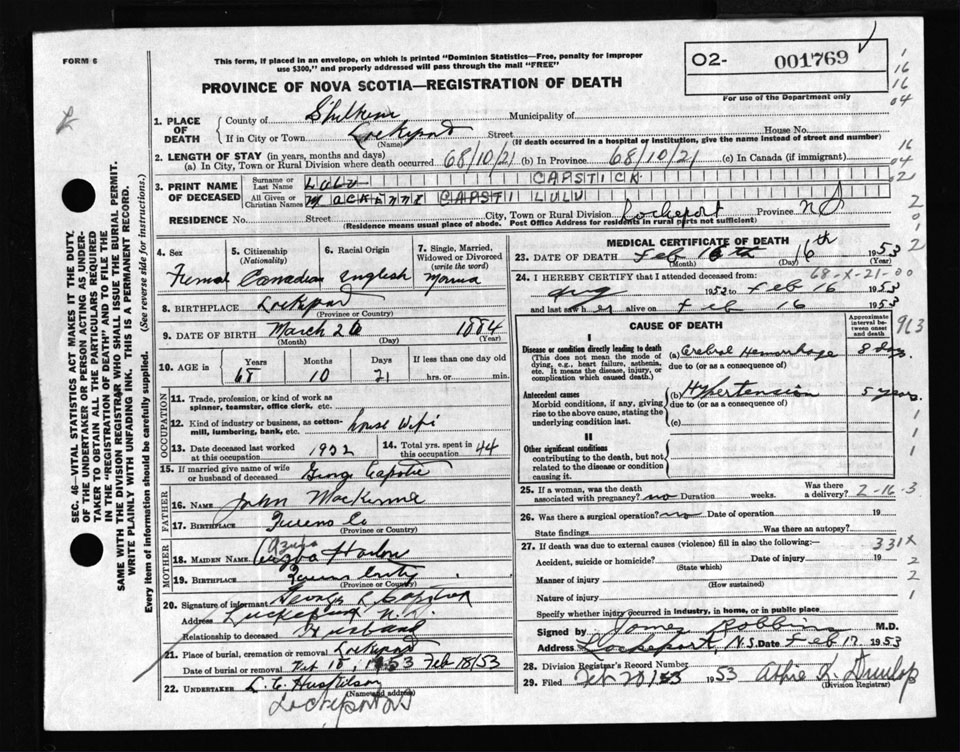 FORM 6
This form, if placed in an envelope, on which is printed "Dominion Statistics—Free, penalty for improper
use $300," and properly addressed will pass through the mail "FREE"
O2- 001769
For use of the Department only
PROVINCE OF NOVA SCOTIA—REGISTRATION OF DEATH
16
16
04
16
04
02
2
0
1
2
1. PLACE OF DEATH
County of Shelburne Municipality of
If in City or Town Lockeport Street House No.
(Name) (If death occurred in a hospital or institution, give the name instead of street and number)
2. LENGTH OF STAY (in years, months and days)
(a) In City, Town or Rural Division where death occurred 68/10/21 (b) In Province 68/10/21 (c) In Canada (if immigrant)
3. PRINT NAME OF DECEASED
Surname or Last Name Lulu CAPSTICK
All Given or Christian Names CAPSTI LULU
RESIDENCE No. Street City, Town or Rural Division Lockeport Province N S
(Residence means usual place of abode. Post Office Address for residents in rural parts not sufficient)
4. Sex
Femal
5. Citizenship (Nationality)
Canadian
6. Racial Origin
English
7. Single, Married, Widowed or Divorced (write the word)
8. BIRTHPLACE Lockeport
(Province or Country)
9. DATE OF BIRTH March 26 1884
(Month) (Day) (Year)
10. AGE in Years Months Days If less than one day old
68 10 21 hrs. or min.
OCCUPATION
11. Trade, profession, or kind of work as spinner, teamster, office clerk, etc.
12. Kind of industry or business, as cotton-mill, lumbering, bank, etc. house Wife
13. Date deceased last worked at this occupation 1952
14. Total yrs. spent in this occupation 44
15. If married give name of wife or husband of deceased George
FATHER
16. NAME John
17. BIRTHPLACE Queens Co
(Province or Country)
MOTHER
18. MAIDEN NAME Azuba Harlow
19. BIRTHPLACE Queens
(Province or Country)
20. Signature of informant George
Address Lockeport N.S.
Relationship to deceased Husband
21. Place of burial, cremation or removal Lockeport
Date of burial or removal Feb 18, 1953 Feb 18/53
22. UNDERTAKER L. C.
(Name and address)
Lockeport NS
MEDICAL CERTIFICATE OF DEATH
23. DATE OF DEATH Feb 16th 16th 1953
(Month) (Day)
68-X-21-00
24. I HEREBY CERTIFY that I attended deceased from:
Aug 1952 to Feb 16 1953
and last saw h er alive on Feb 16 1953
CAUSE OF DEATH
Approximate interval between onset and death
963
I
Disease or condition directly leading to death
(This does not mean the mode of dying, e.g., heart failure, asthenia, etc. It means the disease, injury, or complication which caused death.)
(a) Cerebral Hemorrhage 8 days
due to (or as a consequence)
Antecedent causes
Morbid conditions, if any, giving rise to the above cause, stating the underlying condition last.
(b) Hypertension 5 years
due to (or as a consequence)
(c)
II
Other significant conditions
contributing to the death, but not related to the disease or condition causing it.
25. If a woman, was the death associated with pregnancy? no Duration weeks. Was there a delivery? 2-16-3
26. Was there a surgical operation? no Date of operation 19
State findings Was there an autopsy?
27. If death was due to external causes (violence) fill in also the following:— 331X
Accident, suicide or homicide? Date of injury 19
(State which)
Manner of injury
(How sustained)
Nature of injury
Specify whether injury occurred in industry, in home, or in public place
Signed by James Robbins M.D.
Address Lockeport, N.S. Date Feb 17 1953
28. Division Registrar's Record Number
29. Filed Feb 20/53 1953 Dunlop
(Division Registrar)
SEC. 46—VITAL STATISTICS ACT MAKES IT THE DUTY.
OF THE UNDERTAKER OR PERSON ACTING AS UNDER-
TAKER TO OBTAIN ALL THE PARTICULARS REQUIRED
IN THE "REGISTRATION OF DEATH" AND TO FILE THE
SAME WITH THE DIVISION REGISTRAR WHO SHALL ISSUE THE BURIAL PERMIT.
WRITE PLAINLY WITH UNFADING INK. THIS IS A PERMANENT RECORD.
Every item of information should be carefully supplied. (See reverse side for instructions.)